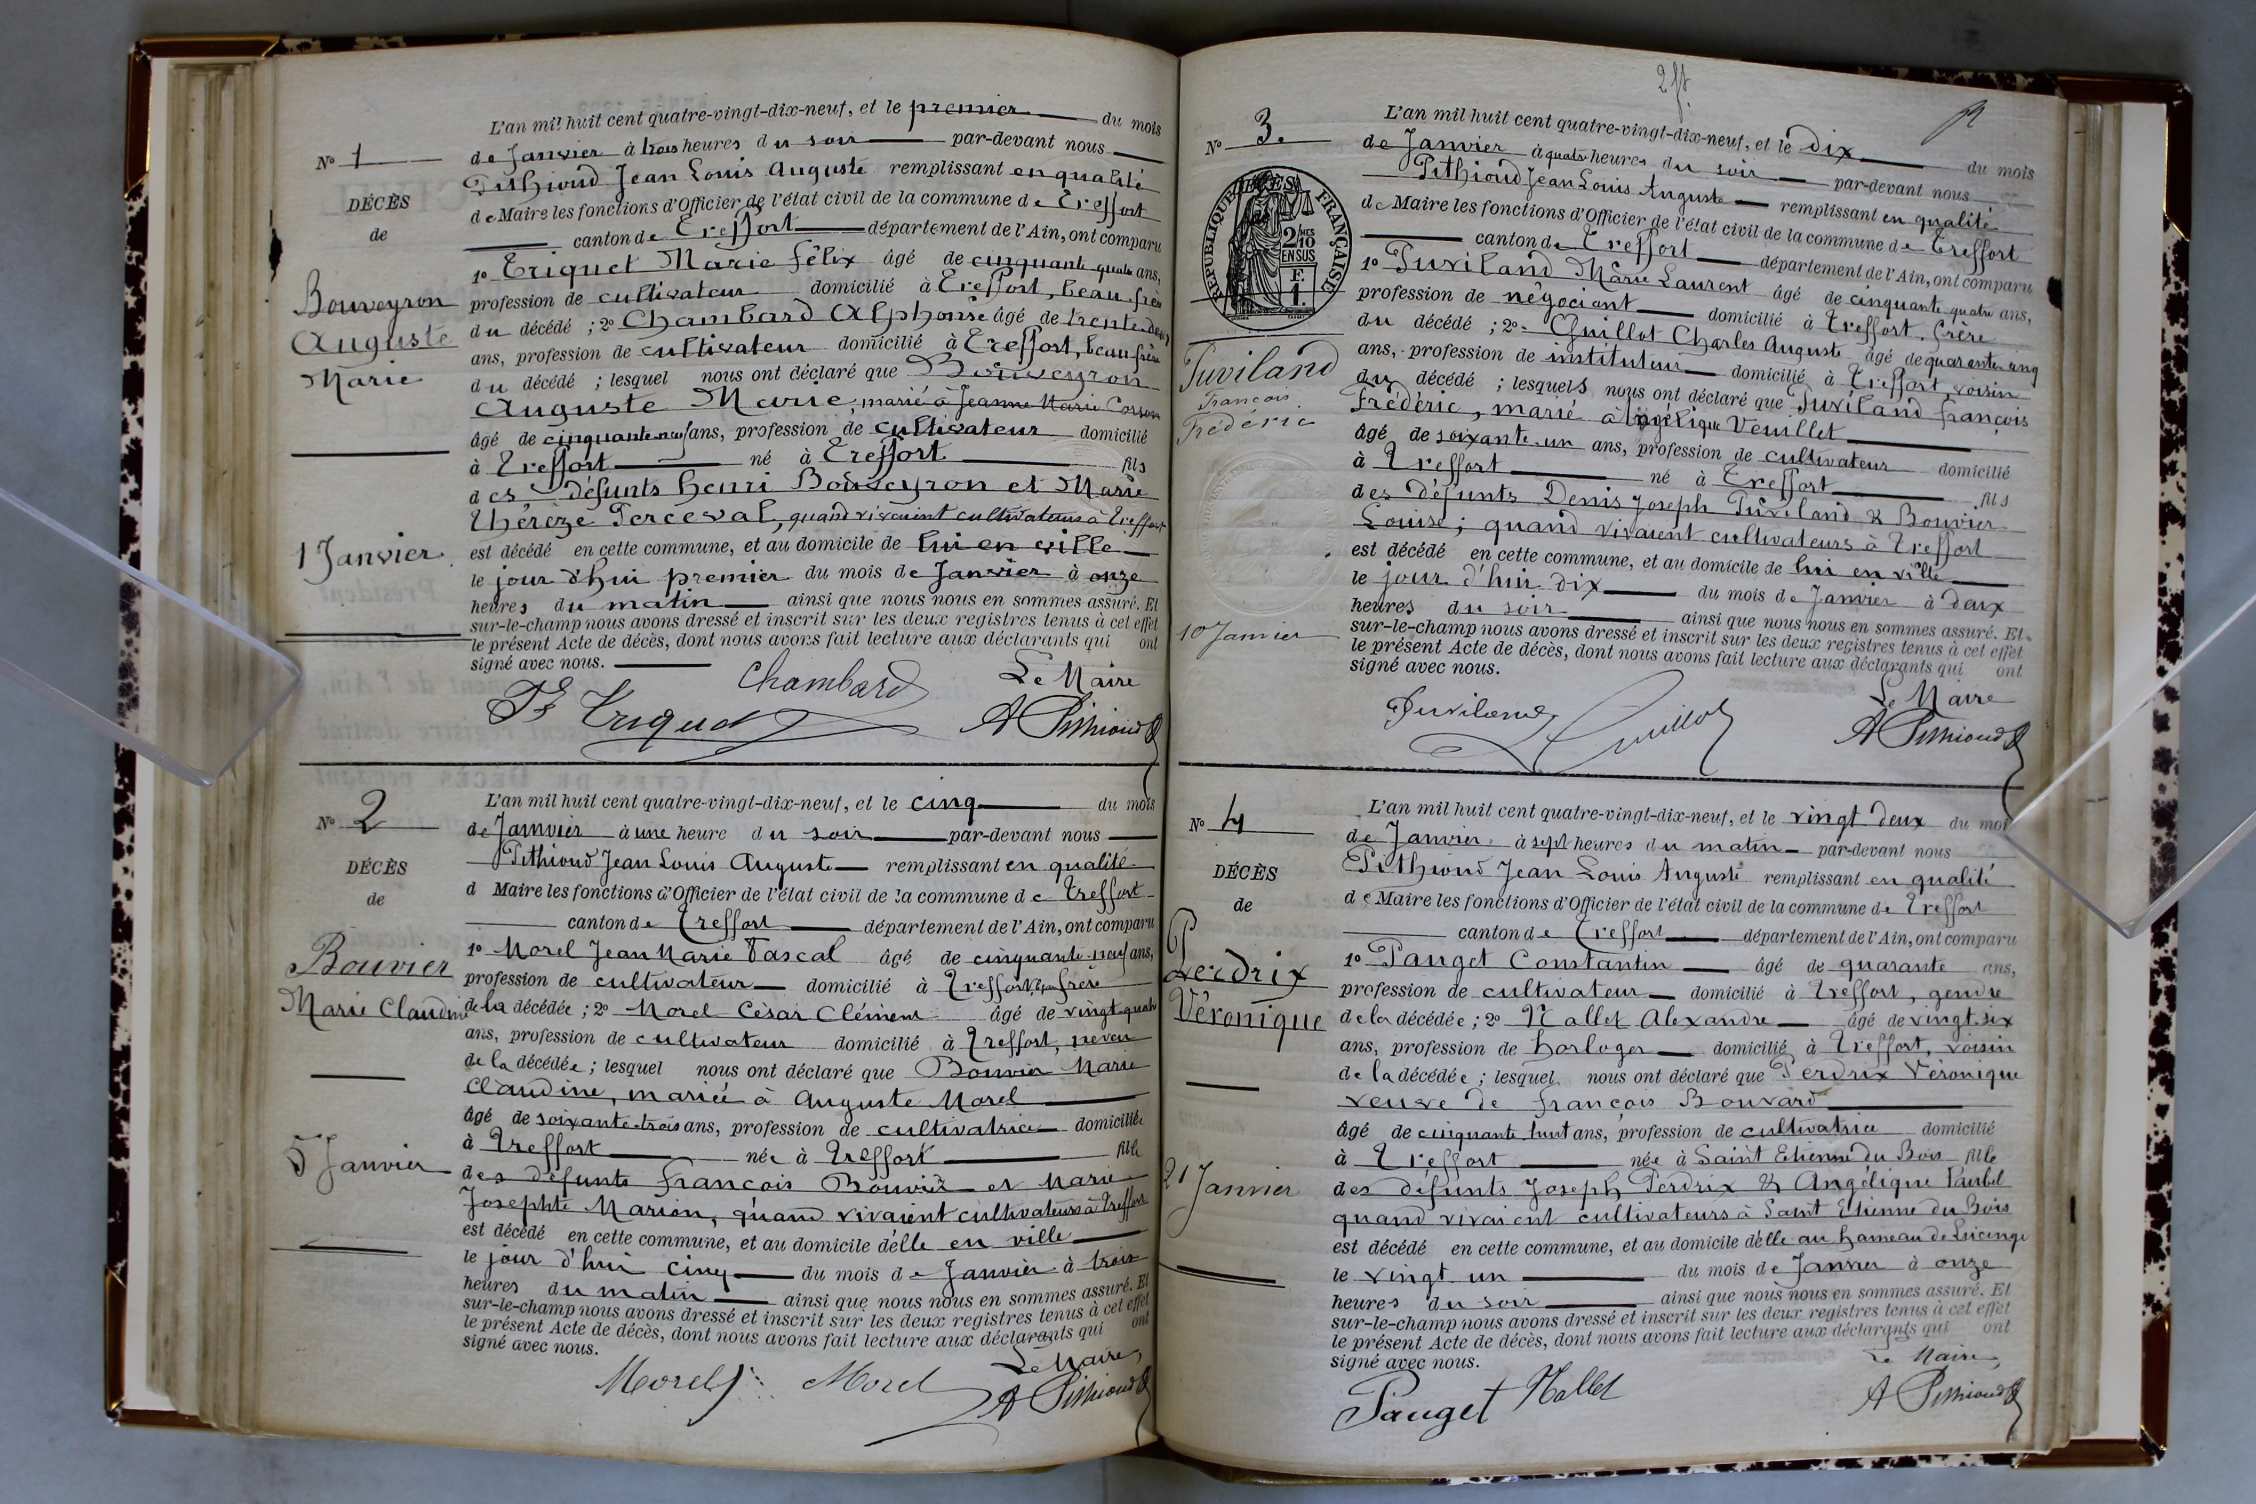 L'an mil huit cent quatre-vingt-dix-neuf, et le premier du mois
No 1
de Janvier à trois heures du soir par-devant nous
Pithioud Jean Louis Auguste remplissant en qualité
DÉCÈS
de Maire les fonctions d'Officier de l'état civil de la commune de Treffort
de
canton de Treffort département de l'Ain, ont comparu
1o Triquet Marie félix âgé de cinquante quatre ans,
Bouveyron
Auguste
Marie
profession de cultivateur domicilié à Treffort, beau-frère
du décédé ; 2o Chambard Alphonse âgé de trente deux
ans, profession de cultivateur domicilié à Treffort, beau frère
du décédé ; lesquel nous ont déclaré que Bouveyron
Auguste Marie, marié à Jeanne Marie
âgé de cinquante neuf ans, profession de cultivateur domicilié
à Treffort né à Treffort fils
des défunts henri Bouveyron et Marie
Thérèze Perceval, quand vivaient cultivateurs à Treffort
1 Janvier
est décédé en cette commune, et au domicile de lui en ville
le jour d'hui premier du mois de Janvier à onze
heures du matin ainsi que nous nous en sommes assuré. Et
sur-le-champ nous avons dressé et inscrit sur les deux registres tenus à cet effet
le présent Acte de décès, dont nous avons fait lecture aux déclarants qui ont
signé avec nous.
Chambard Le Maire
Triquet A Pithioud
L'an mil huit cent quatre-vingt-dix-neuf, et le cinq du mois
No 2
de Janvier à une heure du soir par-devant nous
Pithioud Jean Louis Auguste remplissant en qualité
DÉCÈS
d Maire les fonctions d'Officier de l'état civil de la commune de Treffort
de
canton de Treffort département de l'Ain, ont comparu
1o Morel Jean Marie Pascal âgé de cinquante-neuf ans,
Bouvier
Marie Claudine
profession de cultivateur domicilié à Treffort, beau frère
de la décédée ; 2o Morel Cèsar Clément âgé de vingt quatre
ans, profession de cultivateur domicilié à Treffort, neveu
de la décédée ; lesquel nous ont déclaré que Bouvier Marie
Claudine, mariée à Auguste Morel
âgé de soixante-trois ans, profession de cultivatrice domiciliée
à Treffort née à Treffort fille
5 Janvier
des défunts François Bouvier et Marie
Josephte Marion, quand vivaient cultivateurs à Treffort
est décédé en cette commune, et au domicile d'elle en ville
le jour d'hui cinq du mois de Janvier à trois
heures du matin ainsi que nous nous en sommes assuré. Et
sur-le-champ nous avons dressé et inscrit sur les deux registres tenus à cet effet
le présent Acte de décès, dont nous avons fait lecture aux déclarants qui ont
signé avec nous.
Le Maire,
Morel Morel A Pithioud
L'an mil huit cent quatre-vingt-dix-neuf, et le dix du mois
No 3.
de Janvier à quatre heures du soir par-devant nous
Pithioud Jean Louis Auguste remplissant en qualité
de Maire les fonctions d'Officier de l'état civil de la commune de Treffort
canton de Treffort département de l'Ain, ont comparu
RÉPUBLIQUE FRANÇAISE
2/10 MES
EN SUS
F
1.
1o Puviland Marie Laurent âgé de cinquante quatre ans,
profession de négociant domicilié à Treffort, frère
du décédé ; 2o Guillot Charles Auguste âgé de quarante cinq
ans, profession de instituteur domicilié à Treffort, voisin
Puviland
François
Frédéric
du décédé ; lesquels nous ont déclaré que Puviland françois
Frédéric, marié à Angélique Veuillet
âgé de soixante-un ans, profession de cultivateur domicilié
à Treffort né à Treffort fils
des défunts Denis Joseph Puviland & Bouvier
Louise ; quand vivaient cultivateurs à Treffort
est décédé en cette commune, et au domicile de lui en ville
le jour d'hui dix du mois de Janvier à deux
heures du soir ainsi que nous nous en sommes assuré. Et
10 Janvier
sur-le-champ nous avons dressé et inscrit sur les deux registres tenus à cet effet
le présent Acte de décès, dont nous avons fait lecture aux déclarants qui ont
signé avec nous.
Le Maire
Puviland Guillot A Pithioud
L'an mil huit cent quatre-vingt-dix-neuf, et le vingt deux du mois
No 4
de Janvier à sept heures du matin par-devant nous
Pithioud Jean Louis Auguste remplissant en qualité
DÉCÈS
de Maire les fonctions d'Officier de l'état civil de la commune de Treffort
de
canton de Treffort département de l'Ain, ont comparu
Perdrix
Véronique
1o Pauget Constantin âgé de quarante ans,
profession de cultivateur domicilié à Treffort, gendre
de la décédée ; 2o Nallet Alexandre âgé de vingt-six
ans, profession de horloger domicilié à Treffort, voisin
de la décédée ; lesquel nous ont déclaré que Perdrix Véronique
veuve de françois Bouvard
âgé de cinquante huit ans, profession de cultivatrice domicilié
à Treffort née à Saint Etienne du Bois fille
21 Janvier
des défunts Joseph Perdrix & Angélique
quand vivaient cultivateurs à Saint Etienne du Bois
est décédé en cette commune, et au domicile d'elle au hameau de Lucinge
le vingt un du mois de Janvier à onze
heures du soir ainsi que nous nous en sommes assuré. Et
sur-le-champ nous avons dressé et inscrit sur les deux registres tenus à cet effet
le présent Acte de décès, dont nous avons fait lecture aux déclarants qui ont
signé avec nous.
Le Maire,
Pauget Nallet A Pithioud